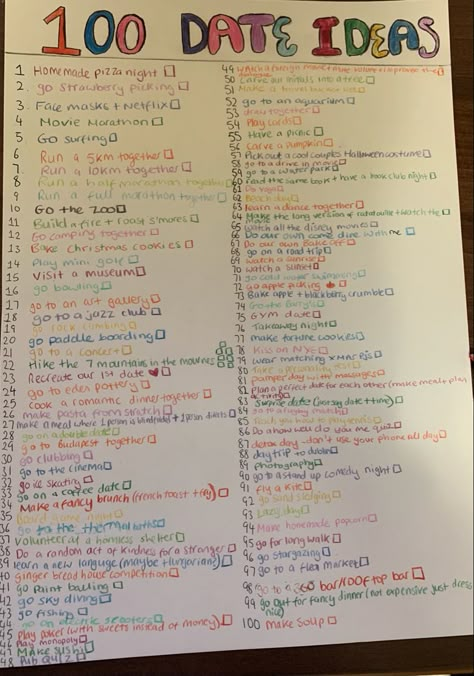 100 DATE IDEAS
1 Homemade pizza night
2. go strawberry picking
3. Face masks + Netflix
4 Movie Marathon
5 Go surfing
6 Run a 5km together
7. Run a 10km together
8 Run a half marathon together
9 Run a full marathon together
10 Go the zoo
11 Build a fire + roast s'mores
12 Go camping together
13 Bake christmas cookies
14 Play mini golf
15 Visit a museum
16 go bowling
17 go to an art gallery
18 go to a jazz club
19 go rock climbing
20 go paddle boarding
21 go to a concert
22 Hike the 7 mountains in the mournes
23 Recreate our 1st date
24 go to eden pottery
25 cook a romantic dinner together
26 make pasta from scratch
27 make a meal where 1 person is blindfolded + 1 person directs
28 go on a double date
29 go to Budapest together
30 go clubbing
31 go to the cinema
32 go ice skating
33 go on a coffee date
34 Make a fancy brunch (french toast + fry)
35 Board game night
36 go to the thermal baths
37 Volunteer at a homeless shelter
38 Do a random act of kindness for a stranger
39 learn a new language (maybe Hungarian)
40 ginger bread house competition
41 go Paint balling
42 go sky diving
43 go fishing
44 go on electric scooters
45 play poker (with sweets instead of money)
46 Play monopoly
47 Make sushi
48 Pub Quiz
49 Watch a foreign movie + mute volume +
50 Carve our initials into a tree
51 Make a travel bucket list
52 go to an aquarium
53 draw together
54 Play cards
55 Have a picnic
56 Carve a pumpkin
57 Pick out a cool couples Halloween costume
58 go to a drive in movie
59 go to a water park
60 read the same book + have a book club night
61 Do yoga
62 Beach day
63 learn a dance together
64 Make the long version of ratatouille + watch the movie
65 watch all the disney movies
66 Do our own come dine with me
67 Do our own Bake Off
68 go on a road trip
69 Watch a sunrise
70 watch a sunset
71 go cold water swimming
72 go apple picking
73 Bake apple + blackberry crumble
74 Go to
75 GYM date
76 Takeaway night
77 make fortune cookies
78 Kiss on NYE
79 wear matching xmas pjs
80 Take a personality test
81 pamper day with massages
82 Plan a perfect date for each other (make meal + plan activity)
83 Surprise date (not say date + time)
84 go to a rugby match
85
86 Do a how well do you me quiz
87 detox day - don't use your phone all day
88 day trip to dublin
89 photography
90 go to a stand up comedy night
91 fly a kite
92 go sand sledging
93 Lazy day
94 Make homemade popcorn
95 go for long walk
96 go stargazing
97 go to a flea market
98 go to a 360 bar/roof top bar
99 go out for fancy dinner (not expensive just dress nice)
100 make soup